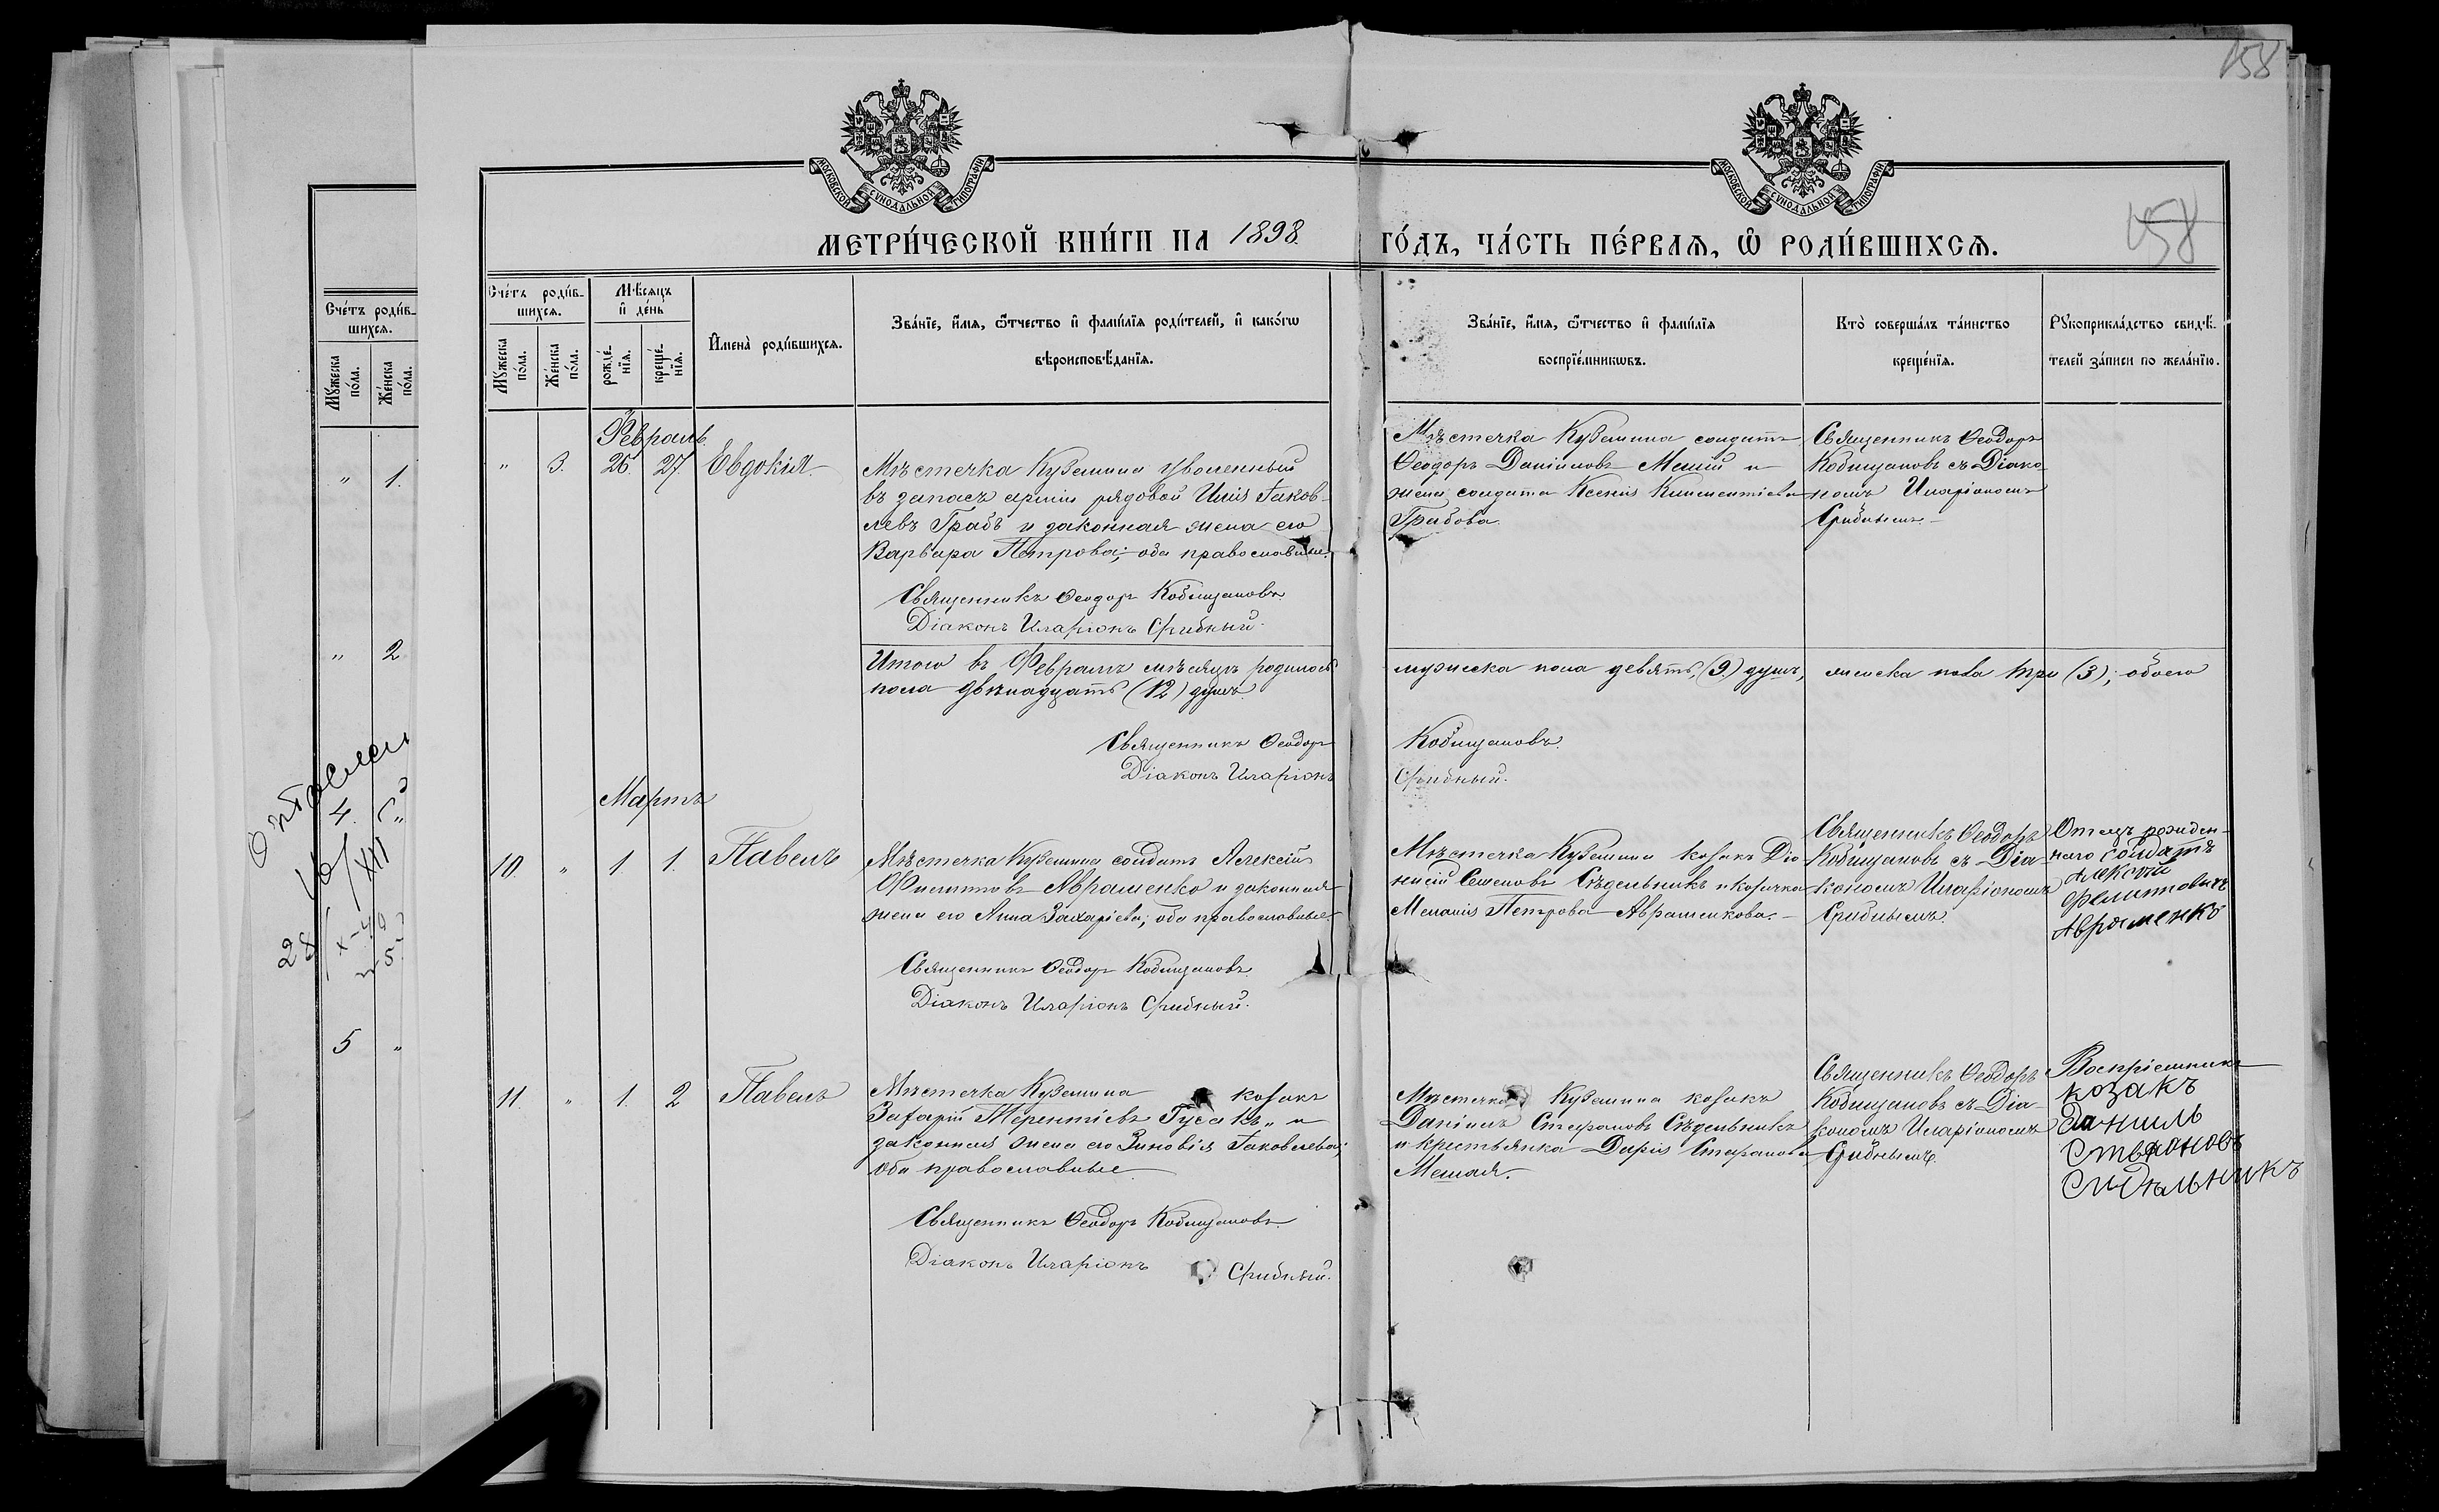 158
МОСКОВСКОЙ СѴНОДАЛЬНОЙ ТИПОГРАФІИ
МОСКОВСКОЙ СѴНОДАЛЬНОЙ ТИПОГРАФІИ
МЕТРИ́ЧЕСКОЙ КНИ́ГИ НА 1898. ГО́ДЪ, ЧА́СТЬ ПЕ́РВАѦ, Ѽ РОДИ́ВШИХСѦ.
158
Сче́тъ роди́в-
шихсѧ.
Мꙋ́жеска
по́ла.
Же́нска
по́ла.
" 1.
" 2
4.
16/XII
28/X-40
5 "
Сче́тъ роди́в-
шихсѧ.
Мꙋ́жеска
по́ла.
Же́нска
по́ла.
Мѣ́сѧцъ
и҆ де́нь
рожде́-
нїѧ.
креще́-
нїѧ.
И҆мена̀ роди́вшихсѧ.
Зва́нїе, и҆́мѧ, ѻ҆́тчество и҆ фами́лїѧ роди́телей, и҆ како́гѡ
вѣроисповѣ́данїѧ.
Зва́нїе, и҆́мѧ, ѻ҆́тчество и҆ фами́лїѧ
воспрїе́мникѡвъ.
Кто̀ соверша́лъ та́инство
креще́нїѧ.
Рꙋкоприкла́дство свидѣ́-
телей за́писи по жела́нїю.
Февраль.
" 3. 26. 27. Евдокія
Мѣстечка Куземина уволенный
въ запасъ арміи рядовой Илія Іаков-
левъ Грабъ и законная жена его
Варвара Петрова; оба православные.
Священникъ Ѳеодоръ Кобищановъ.
Діаконъ Иларіонъ Срибный.
Мѣстечка Куземина солдатъ
Ѳеодоръ Даніиловъ Мешій и
жена солдата Ксенія Климентіева
Грабова.
Священникъ Ѳеодоръ
Кобищановъ съ Діако-
номъ Иларіономъ
Срибнымъ.
Итого въ Февралѣ мѣсяцѣ родилось мужеска пола девять (9) душъ, женска пола три (3); обоего
пола двѣнадцать (12) душъ.
Священникъ Ѳеодоръ Кобищановъ.
Діаконъ Иларіонъ Срибный.
Мартъ
10. " 1. 1. Павелъ
Мѣстечка Куземина солдатъ Алексій
Филиптовъ Авраменко и законная
жена его Анна Захаріева; оба православные.
Священникъ Ѳеодоръ Кобищановъ.
Діаконъ Иларіонъ Срибный.
Мѣстечка Куземина козакъ Діо-
нисій Семеновъ Сѣдельникъ и козачка
Меланія Петрова Авраменкова.
Священникъ Ѳеодоръ
Кобищановъ съ Діа-
кономъ Иларіономъ
Срибнымъ.
Отецъ рожден-
наго солдатъ
Алексѣй
Филиптовичъ
Авраменко
11. " 1. 2 Павелъ
Мѣстечка Куземина козакъ
Захарій Терентіевъ Гусакъ и
законная жена его Зиновія Іаковлева;
оба православные
Священникъ Ѳеодоръ Кобищановъ.
Діаконъ Иларіонъ Срибный.
Мѣстечка Куземина козакъ
Даніилъ Стефановъ Сѣдельникъ
и крестьянка Дарія Стефанова
Мешая.
Священникъ Ѳеодоръ
Кобищановъ съ Діа-
кономъ Иларіономъ
Срибнымъ.
Воспріемникъ
козакъ
Данииль
Стефановъ
Сидѣльникъ